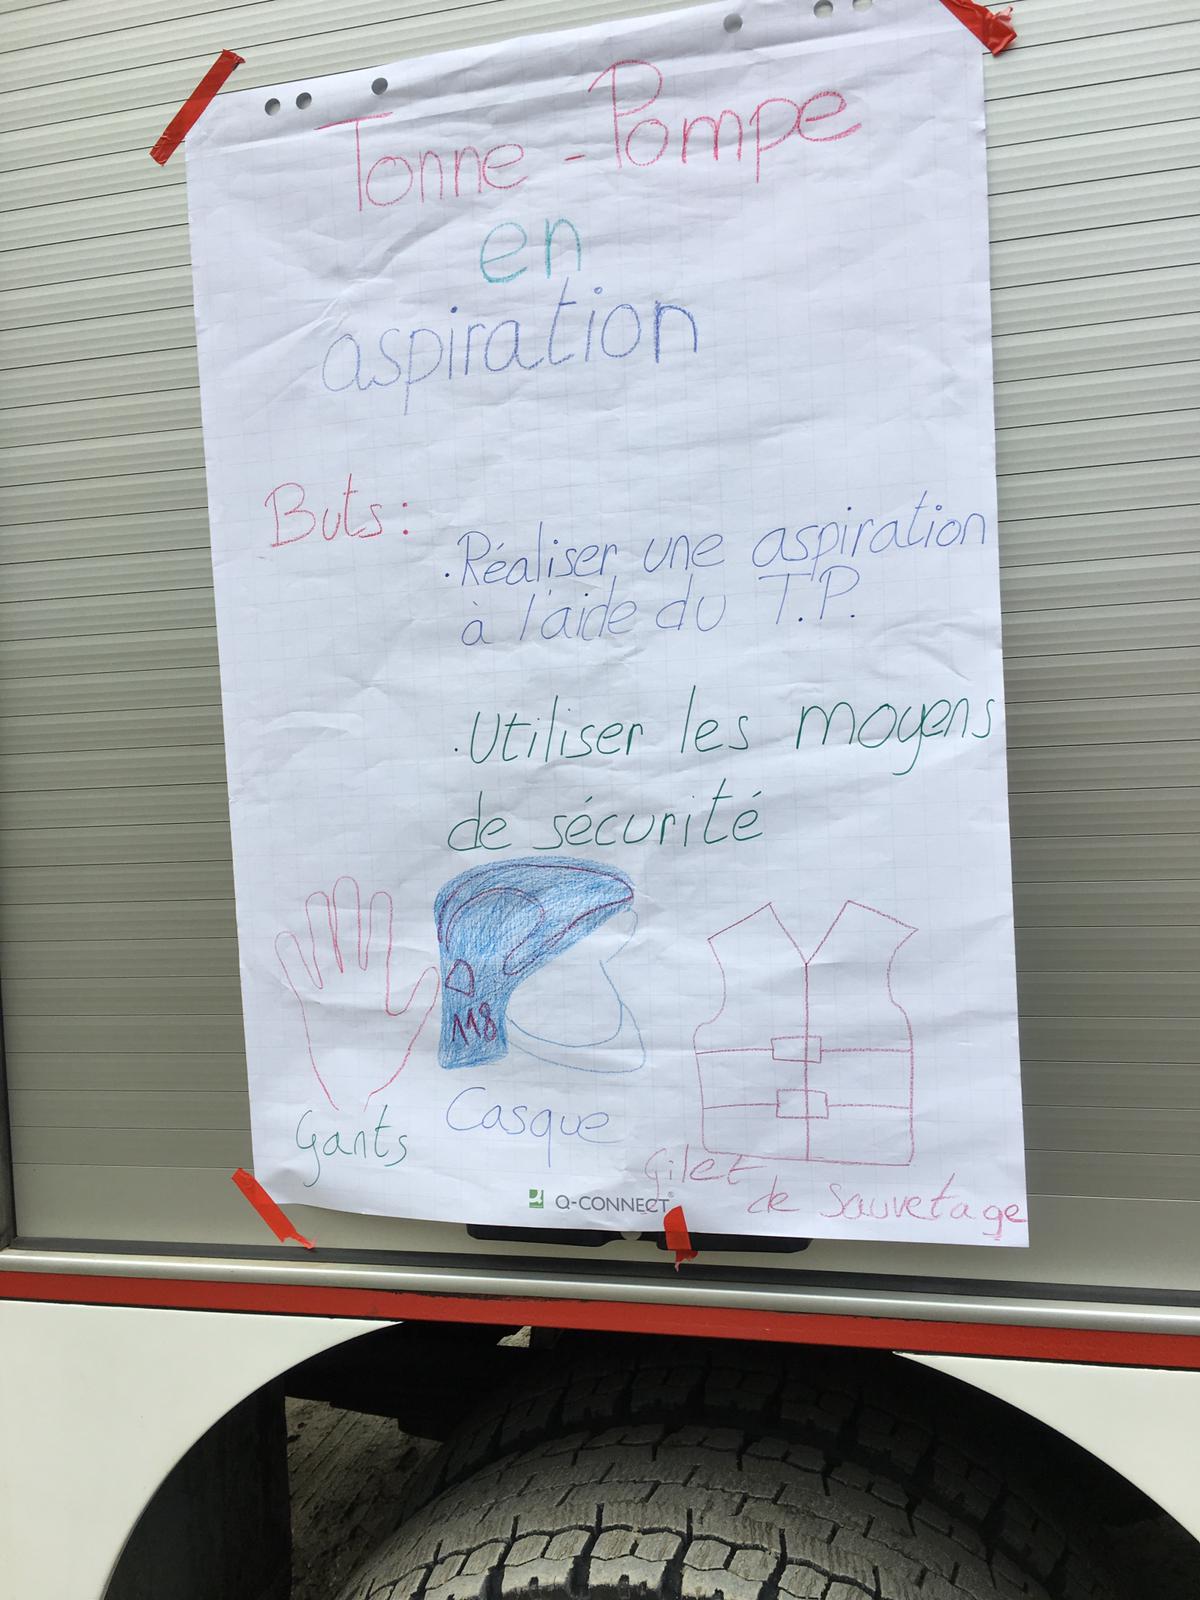 Tonne-Pompe
en
aspiration
Buts:
·Réaliser une aspiration
à l'aide du T.P.
·Utiliser les moyens
de sécurité
118
Gants
Casque
Gilet
de sauvetage
Q-CONNECT®